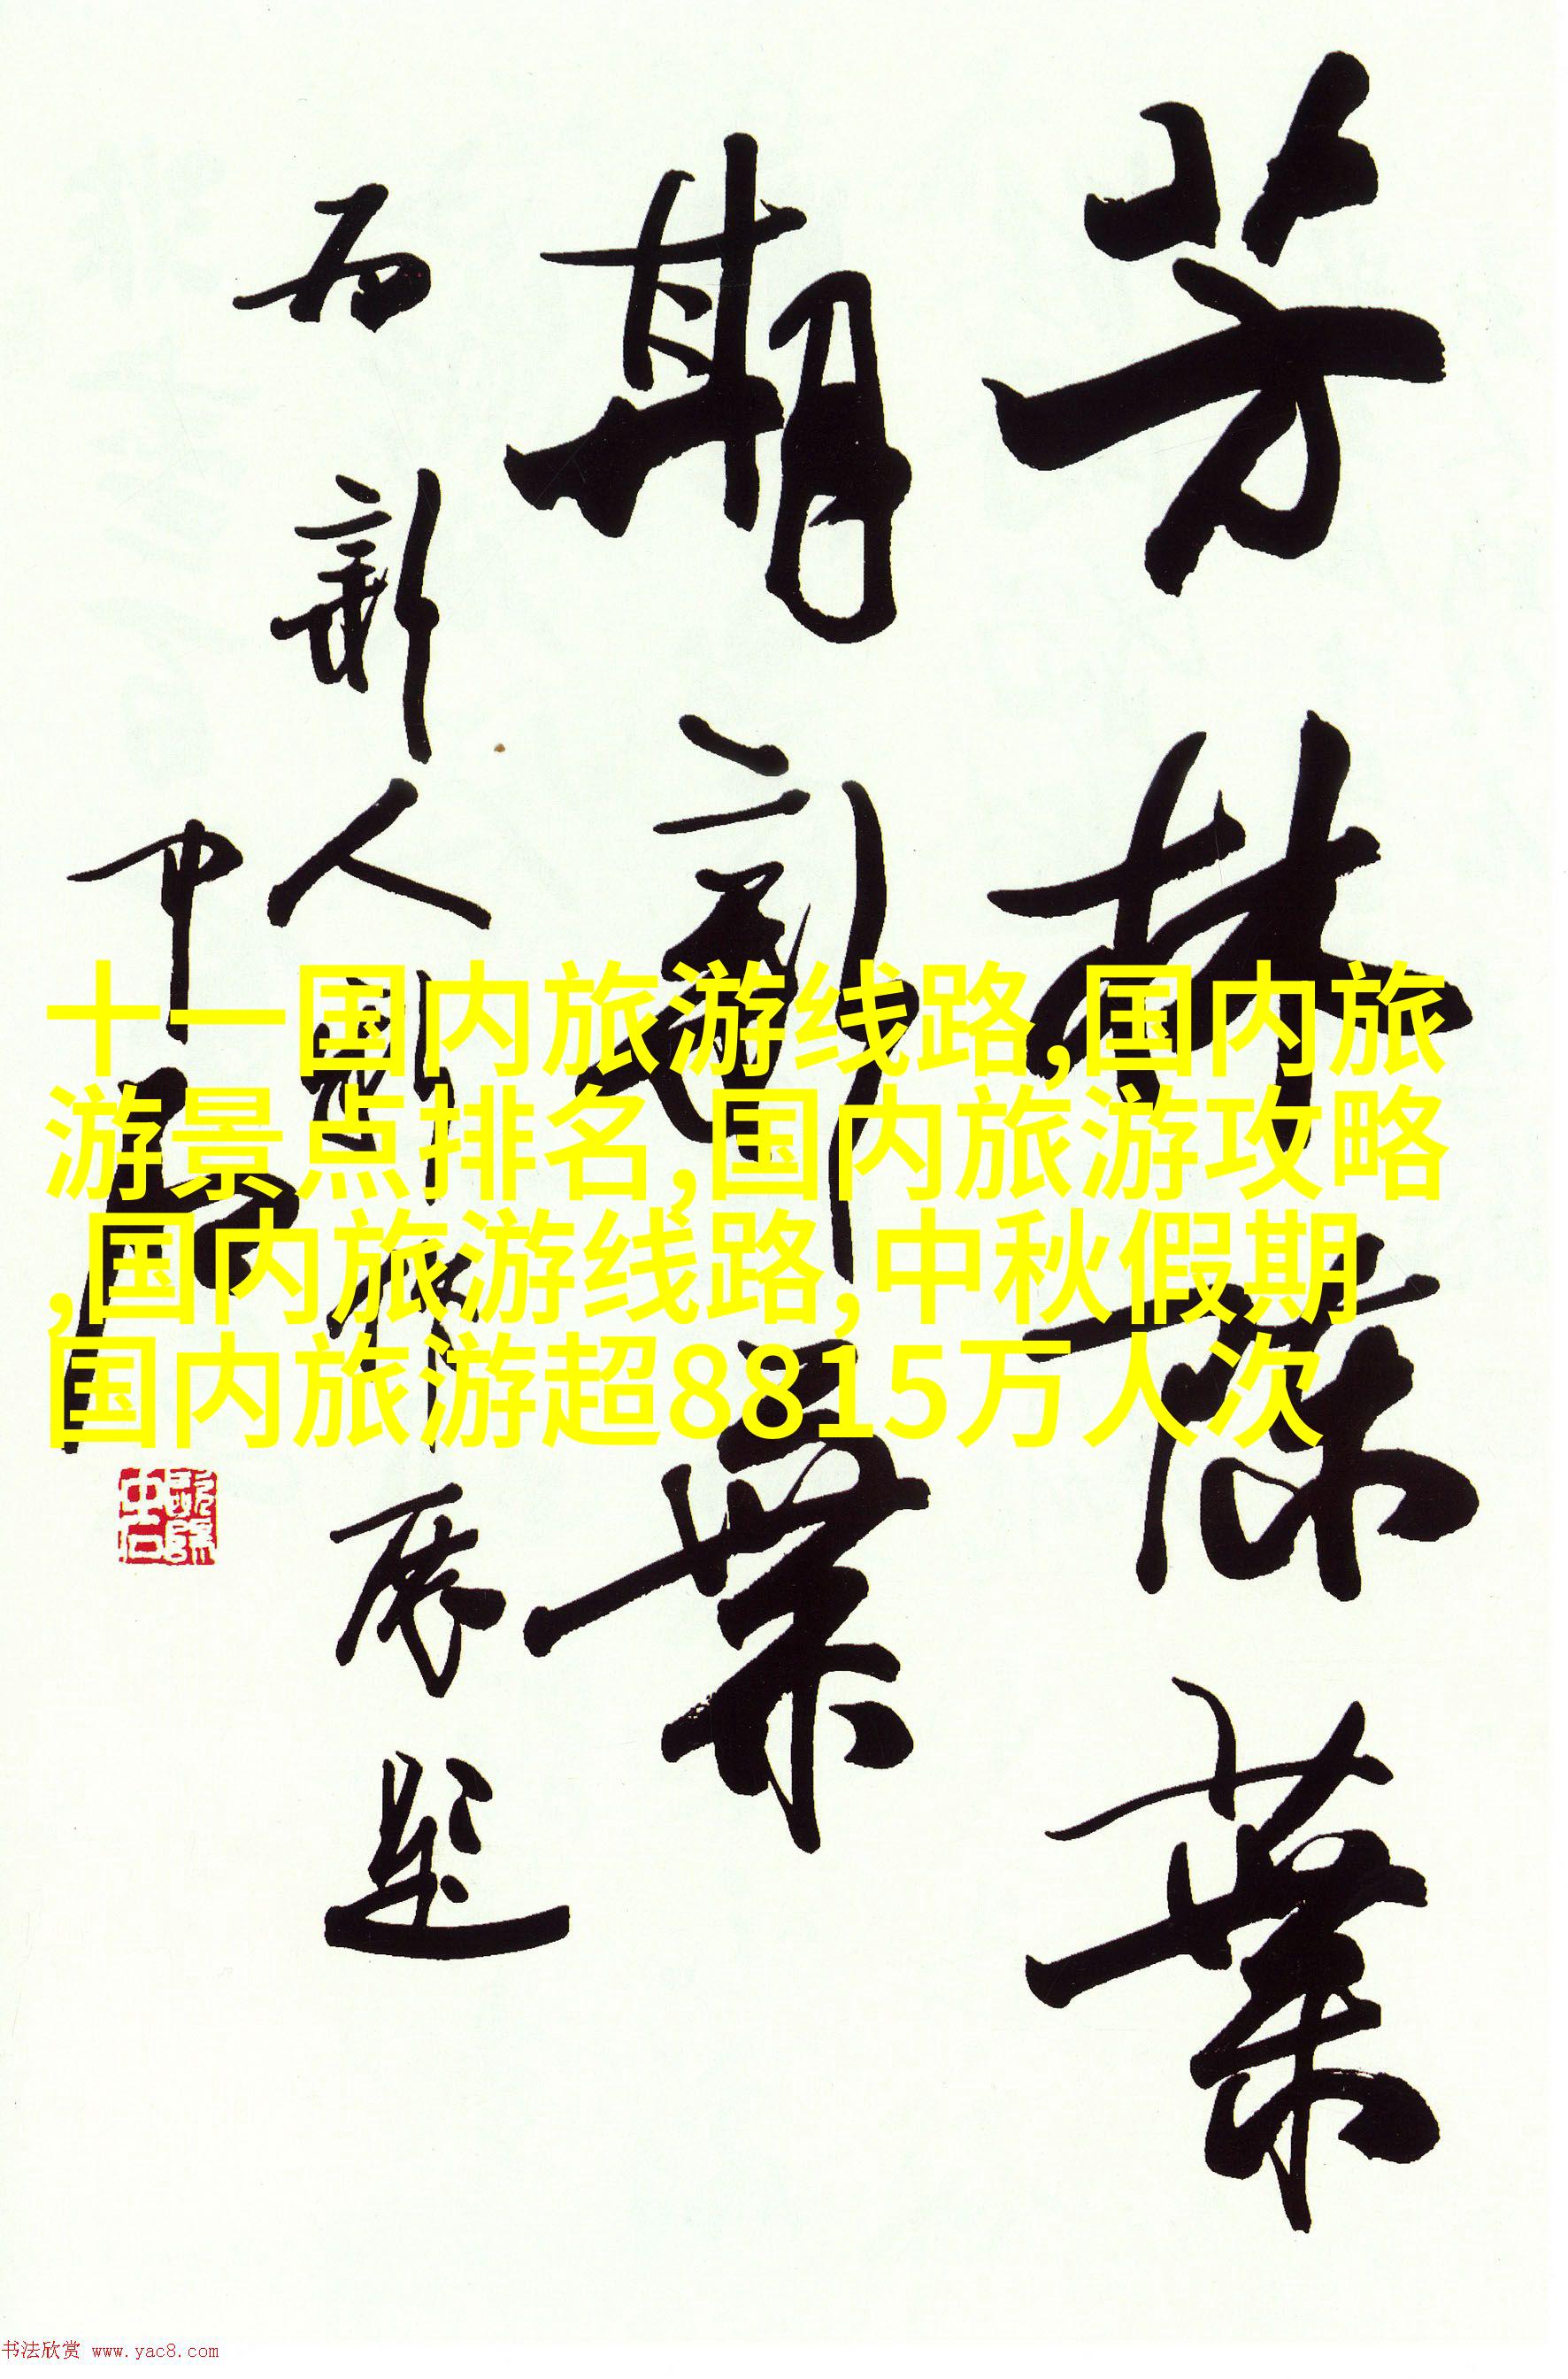 芳林葉
期新葉
新人新展題
中石
十一国内旅游线路,国内旅
游景点排名,国内旅游攻略
,国内旅游线路,中秋假期
国内旅游超8815万人次
书法欣赏 www.yac8.com